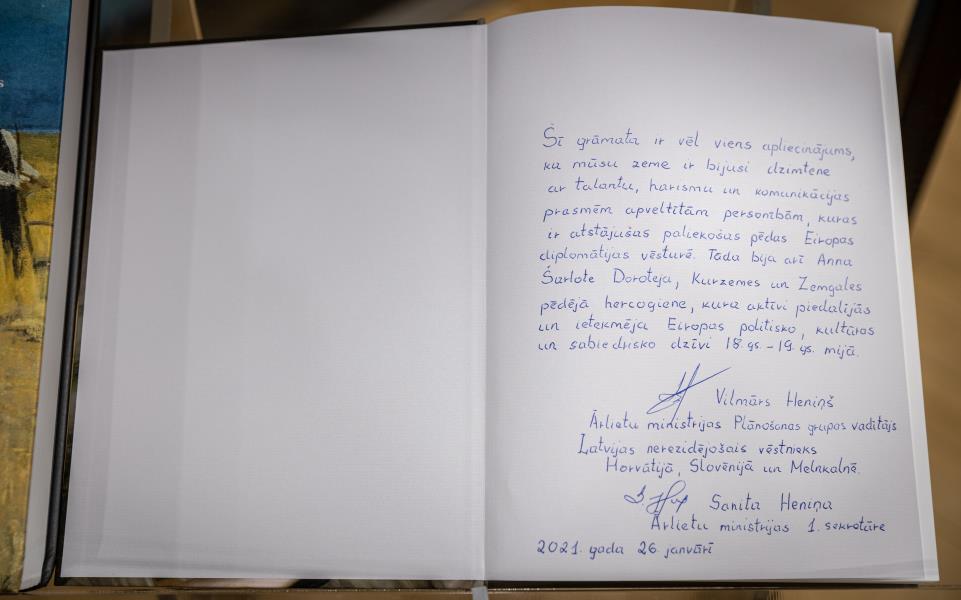 Šī grāmata ir vēl viens apliecinājums,
ka mūsu zeme ir bijusi dzimtene
ar talantu, harismu un komunikācijas
prasmēm apveltītām personībām, kuras
ir atstājušas paliekošas pēdas Eiropas
diplomātijas vēsturē. Tāda bija arī Anna
Šarlote Doroteja, Kurzemes un Zemgales
pēdējā hercogiene, kura aktīvi piedalījās
un ietekmēja Eiropas politisko, kultūras
un sabiedrisko dzīvi 18. gs. – 19. gs. mijā.
Vilmārs Heniņš
Ārlietu ministrijas Plānošanas grupas vadītājs
Latvijas nerezidējošais vēstnieks
Horvātijā, Slovēnijā un Melnkalnē.
Sanita Heniņa
Ārlietu ministrijas 1. sekretāre
2021. gada 26. janvārī